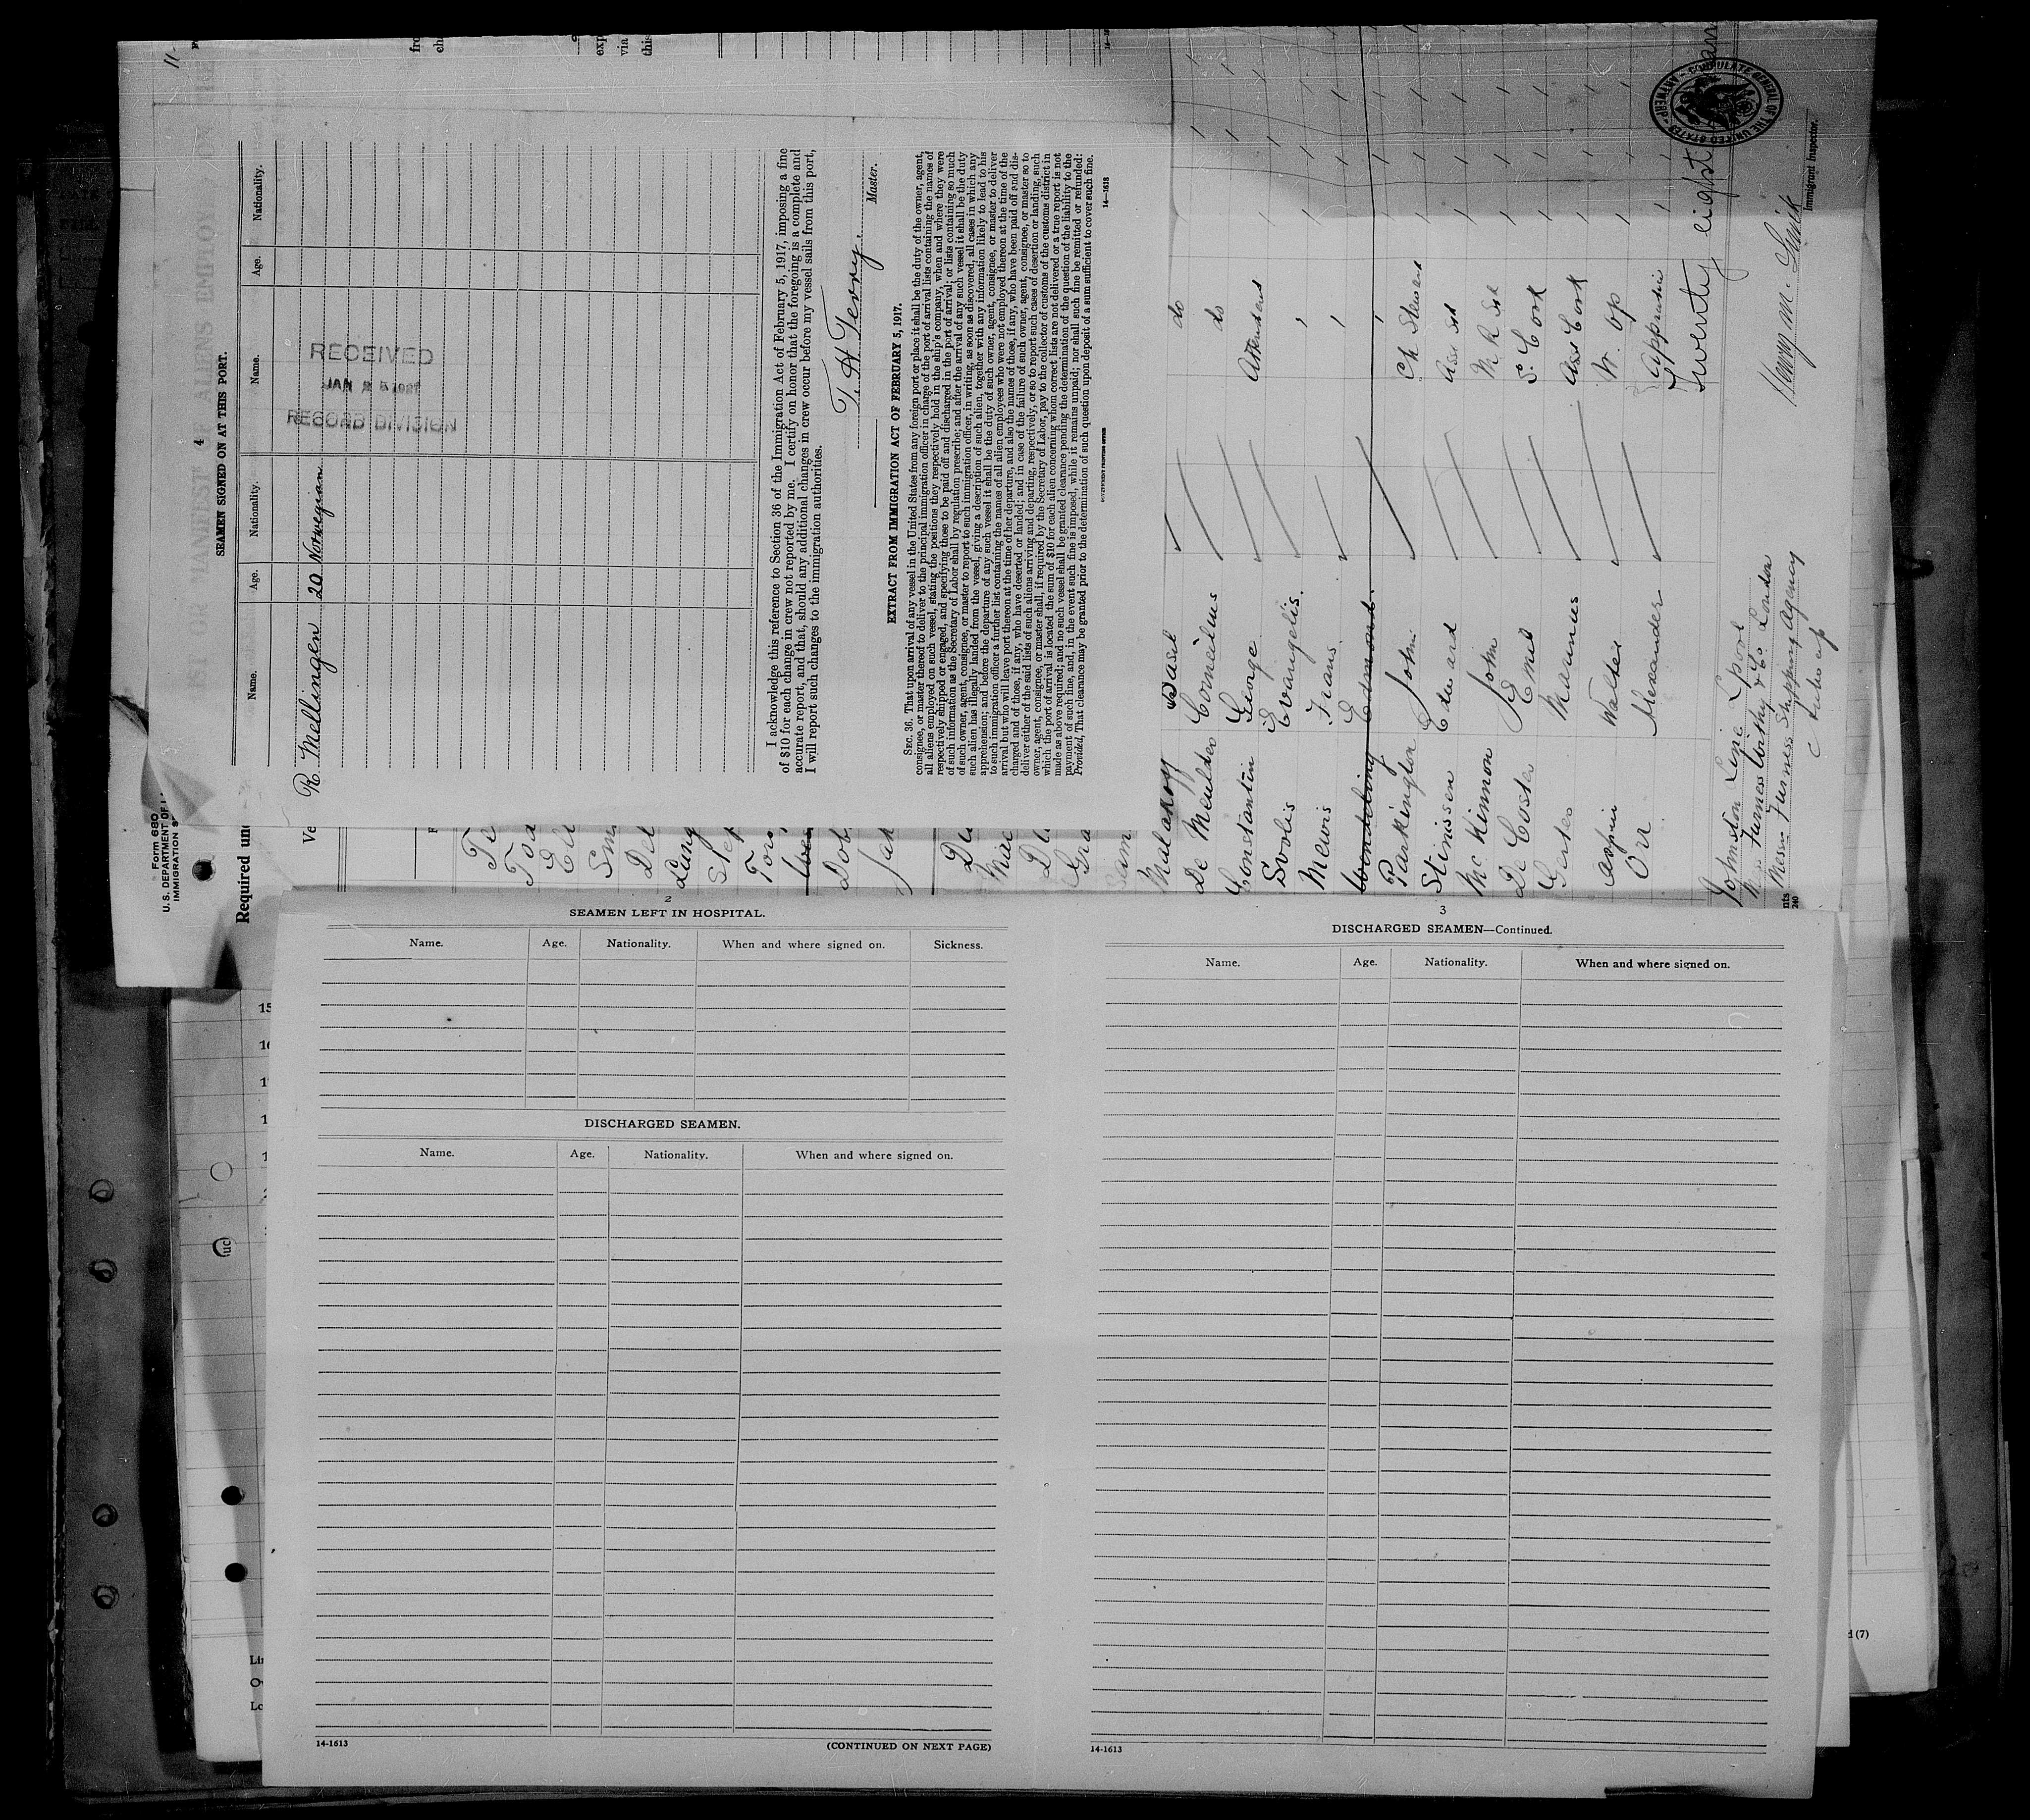 4
SEAMEN SIGNED ON AT THIS PORT.
Name. Age. Nationality. Name. Age. Nationality.
R. Mellingen 20 Norwegian
RECEIVED
JAN 25
RECORD DIVISION
I acknowledge this reference to Section 36 of the Immigration Act of February 5, 1917, imposing a fine
of $10 for each change in crew not reported by me. I certify on honor that the foregoing is a complete and
accurate report, and that, should any additional changes in crew occur before my vessel sails from this port,
I will report such changes to the immigration authorities.
T. H Terry.
Master.
EXTRACT FROM IMMIGRATION ACT OF FEBRUARY 5, 1917.
SEC. 36. That upon arrival of any vessel in the United States from any foreign port or place it shall be the duty of the owner, agent,
consignee, or master thereof to deliver to the principal immigration officer in charge of the port of arrival lists containing the names of
all aliens employed on such vessel, stating the positions they respectively hold in the ship's company, when and where they were
respectively shipped or engaged, and specifying those to be paid off and discharged in the port of arrival; or lists containing so much
of such information as the Secretary of Labor shall by regulation prescribe; and after the arrival of any such vessel it shall be the duty
of such owner, agent, consignee, or master to report to such immigration officer, in writing, as soon as discovered, all cases in which any
such alien has illegally landed from the vessel, giving a description of such alien, together with any information likely to lead to his
apprehension; and before the departure of any such vessel it shall be the duty of such owner, agent, consignee, or master to deliver
to such immigration officer a further list containing the names of all alien employees who were not employed thereon at the time of the
arrival but who will leave port thereon at the time of her departure, and also the names of those, if any, who have been paid off and dis-
charged and of those, if any, who have deserted or landed; and in case of the failure of such owner, agent, consignee, or master so to
deliver either of the said lists of such aliens arriving and departing, respectively, or so to report such cases of desertion or landing, such
owner, agent, consignee, or master shall, if required by the Secretary of Labor, pay to the collector of customs of the customs district in
which the port of arrival is located the sum of $10 for each alien concerning whom correct lists are not delivered or a true report is not
made as above required; and no such vessel shall be granted clearance pending the determination of the question of the liability to the
payment of such fine, and, in the event such fine is imposed, while it remains unpaid; nor shall such fine be remitted or refunded:
Provided, That clearance may be granted prior to the determination of such question upon deposit of a sum sufficient to cover such fine.
14—1613
Form 680
U. S. DEPARTMENT OF
IMMIGRATION
Required und
Malakoff Basil do
De Meulder Cornelius do
Constantin George Attendant
Svolis Evangelis.
Mewis Frans
Wendeling Edmond.
Parkington John Ch Steward
Stinissen Edward Asst Std
Mc Kinnon John M R Std
De Coster Emil S. Cook
Gertes Marinus Asst Cook
Walter W. Op
Orr Alexander Apprentice
Twenty eight
CONSULATE GENERAL OF THE UNITED STATES
ANTWERP
Johnston Line Lpool
Furness Withy & Co. London
Messrs Furness Shipping Agency
Antwerp
Henry M.
Immigrant Inspector.
2
SEAMEN LEFT IN HOSPITAL.
Name. Age. Nationality. When and where signed on. Sickness.
DISCHARGED SEAMEN.
Name. Age. Nationality. When and where signed on.
14-1613
(CONTINUED ON NEXT PAGE)
3
DISCHARGED SEAMEN—Continued.
Name. Age. Nationality. When and where signed on.
14-1613